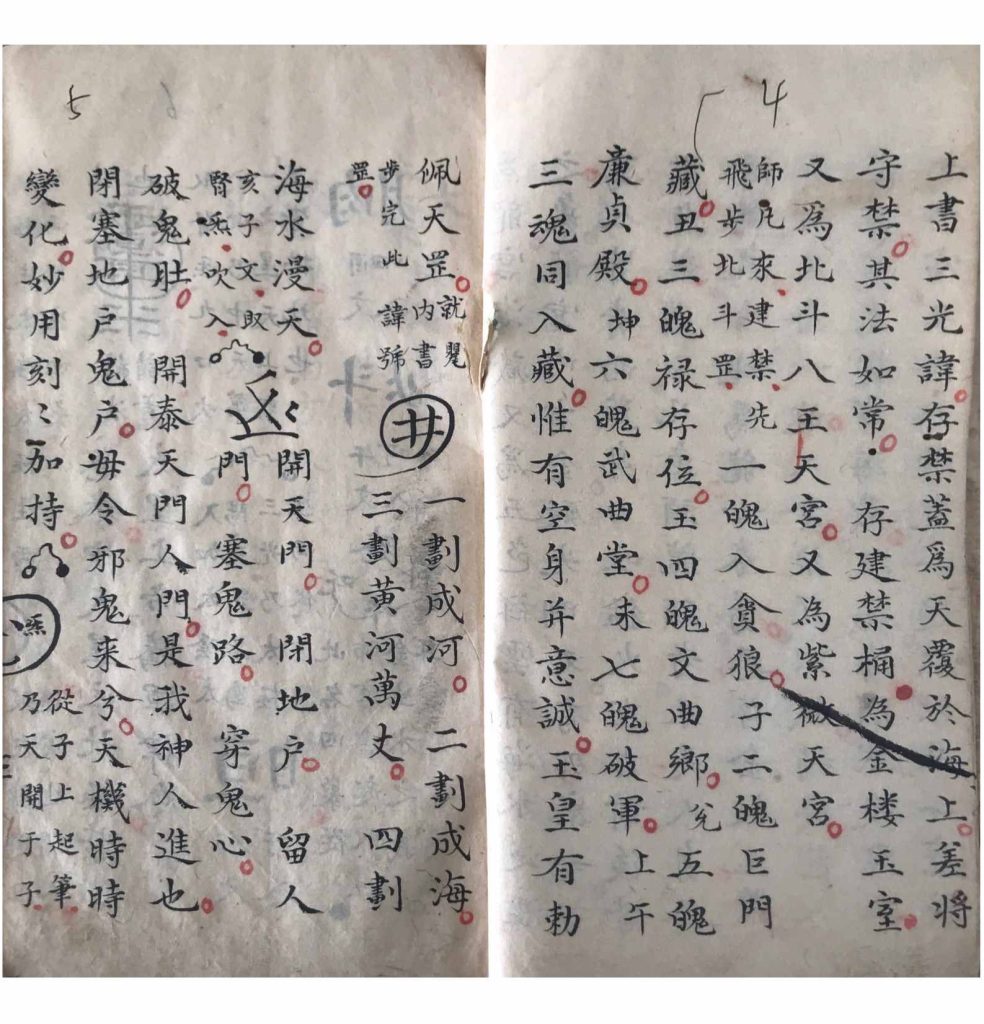 4
上書三光諱存禁蓋爲天覆於海上差将
守禁其法如常存建禁桶為金楼玉室
又爲北斗八王天宮又為紫微天宮
師凡來建禁先
飛步北斗罡
一魄入貪狼子二魄巨門
藏丑三魄禄存位玉四魄文曲鄉兊五魄
廉貞殿坤六魄武曲堂未七魄破軍上午
三魂同入藏惟有空身并意誠玉皇有勅
5
佩天罡
就
内書
步完此諱號
罡
井
一劃成河二劃成海
三劃黃河萬丈四劃
海水漫天開天門閉地户留人
門塞鬼路穿鬼心
亥子文取
腎炁吹入
破鬼肚開泰天門人門是我神人進也
閉塞地户鬼户毋令邪鬼来兮天機時時
變化妙用刻〻加持
炁
從子上起筆
乃天開于子